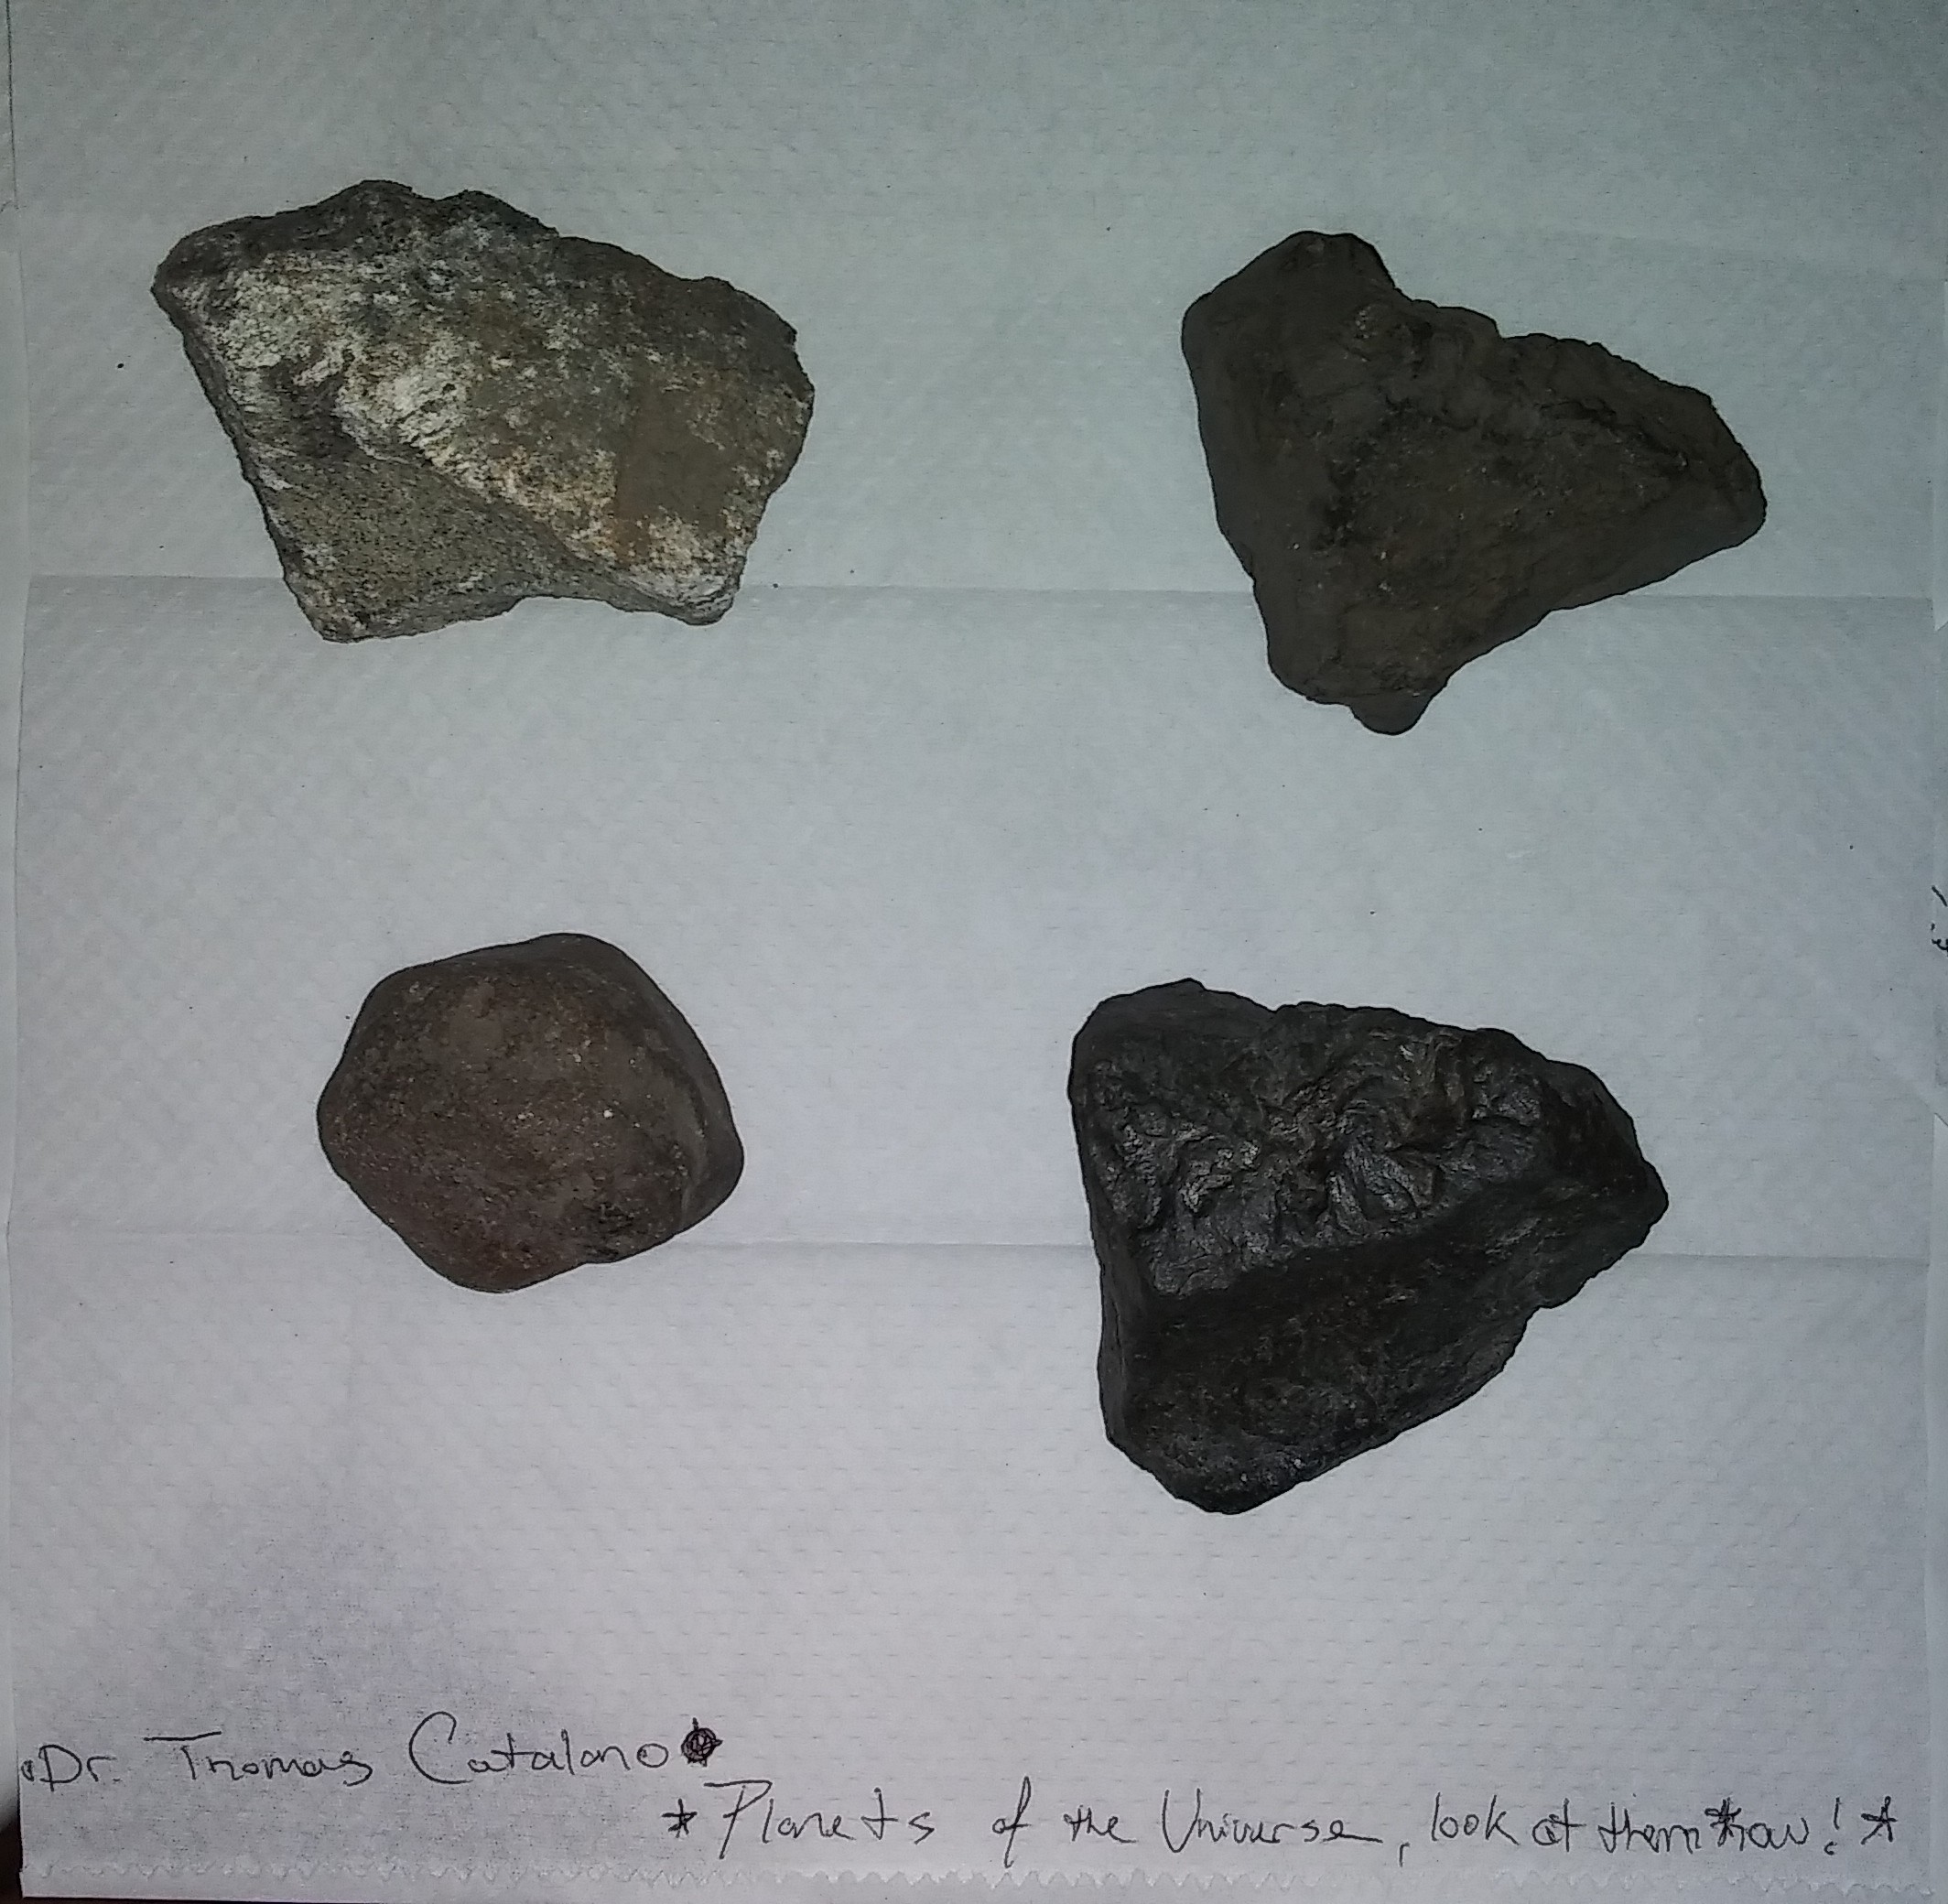 Dr. Thomas Catalano
*Planets of the Universe, look at them now! *